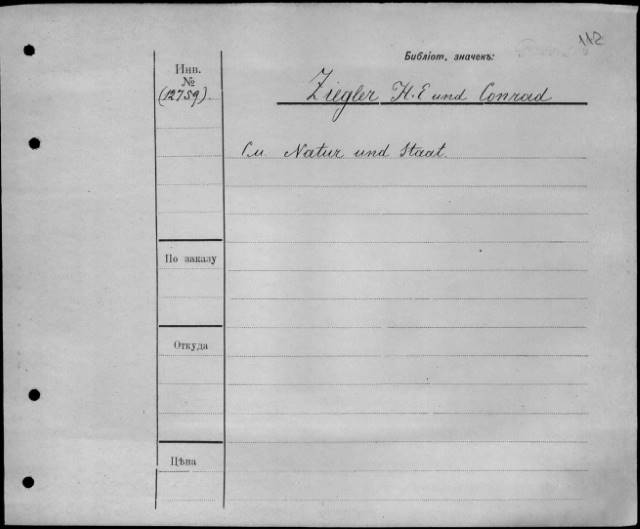 112
Библіот. значекъ:
Инв.
№
(12759)
Ziegler H.E und Conrad
См Natur und Staat
По заказу
Откуда
Цѣна